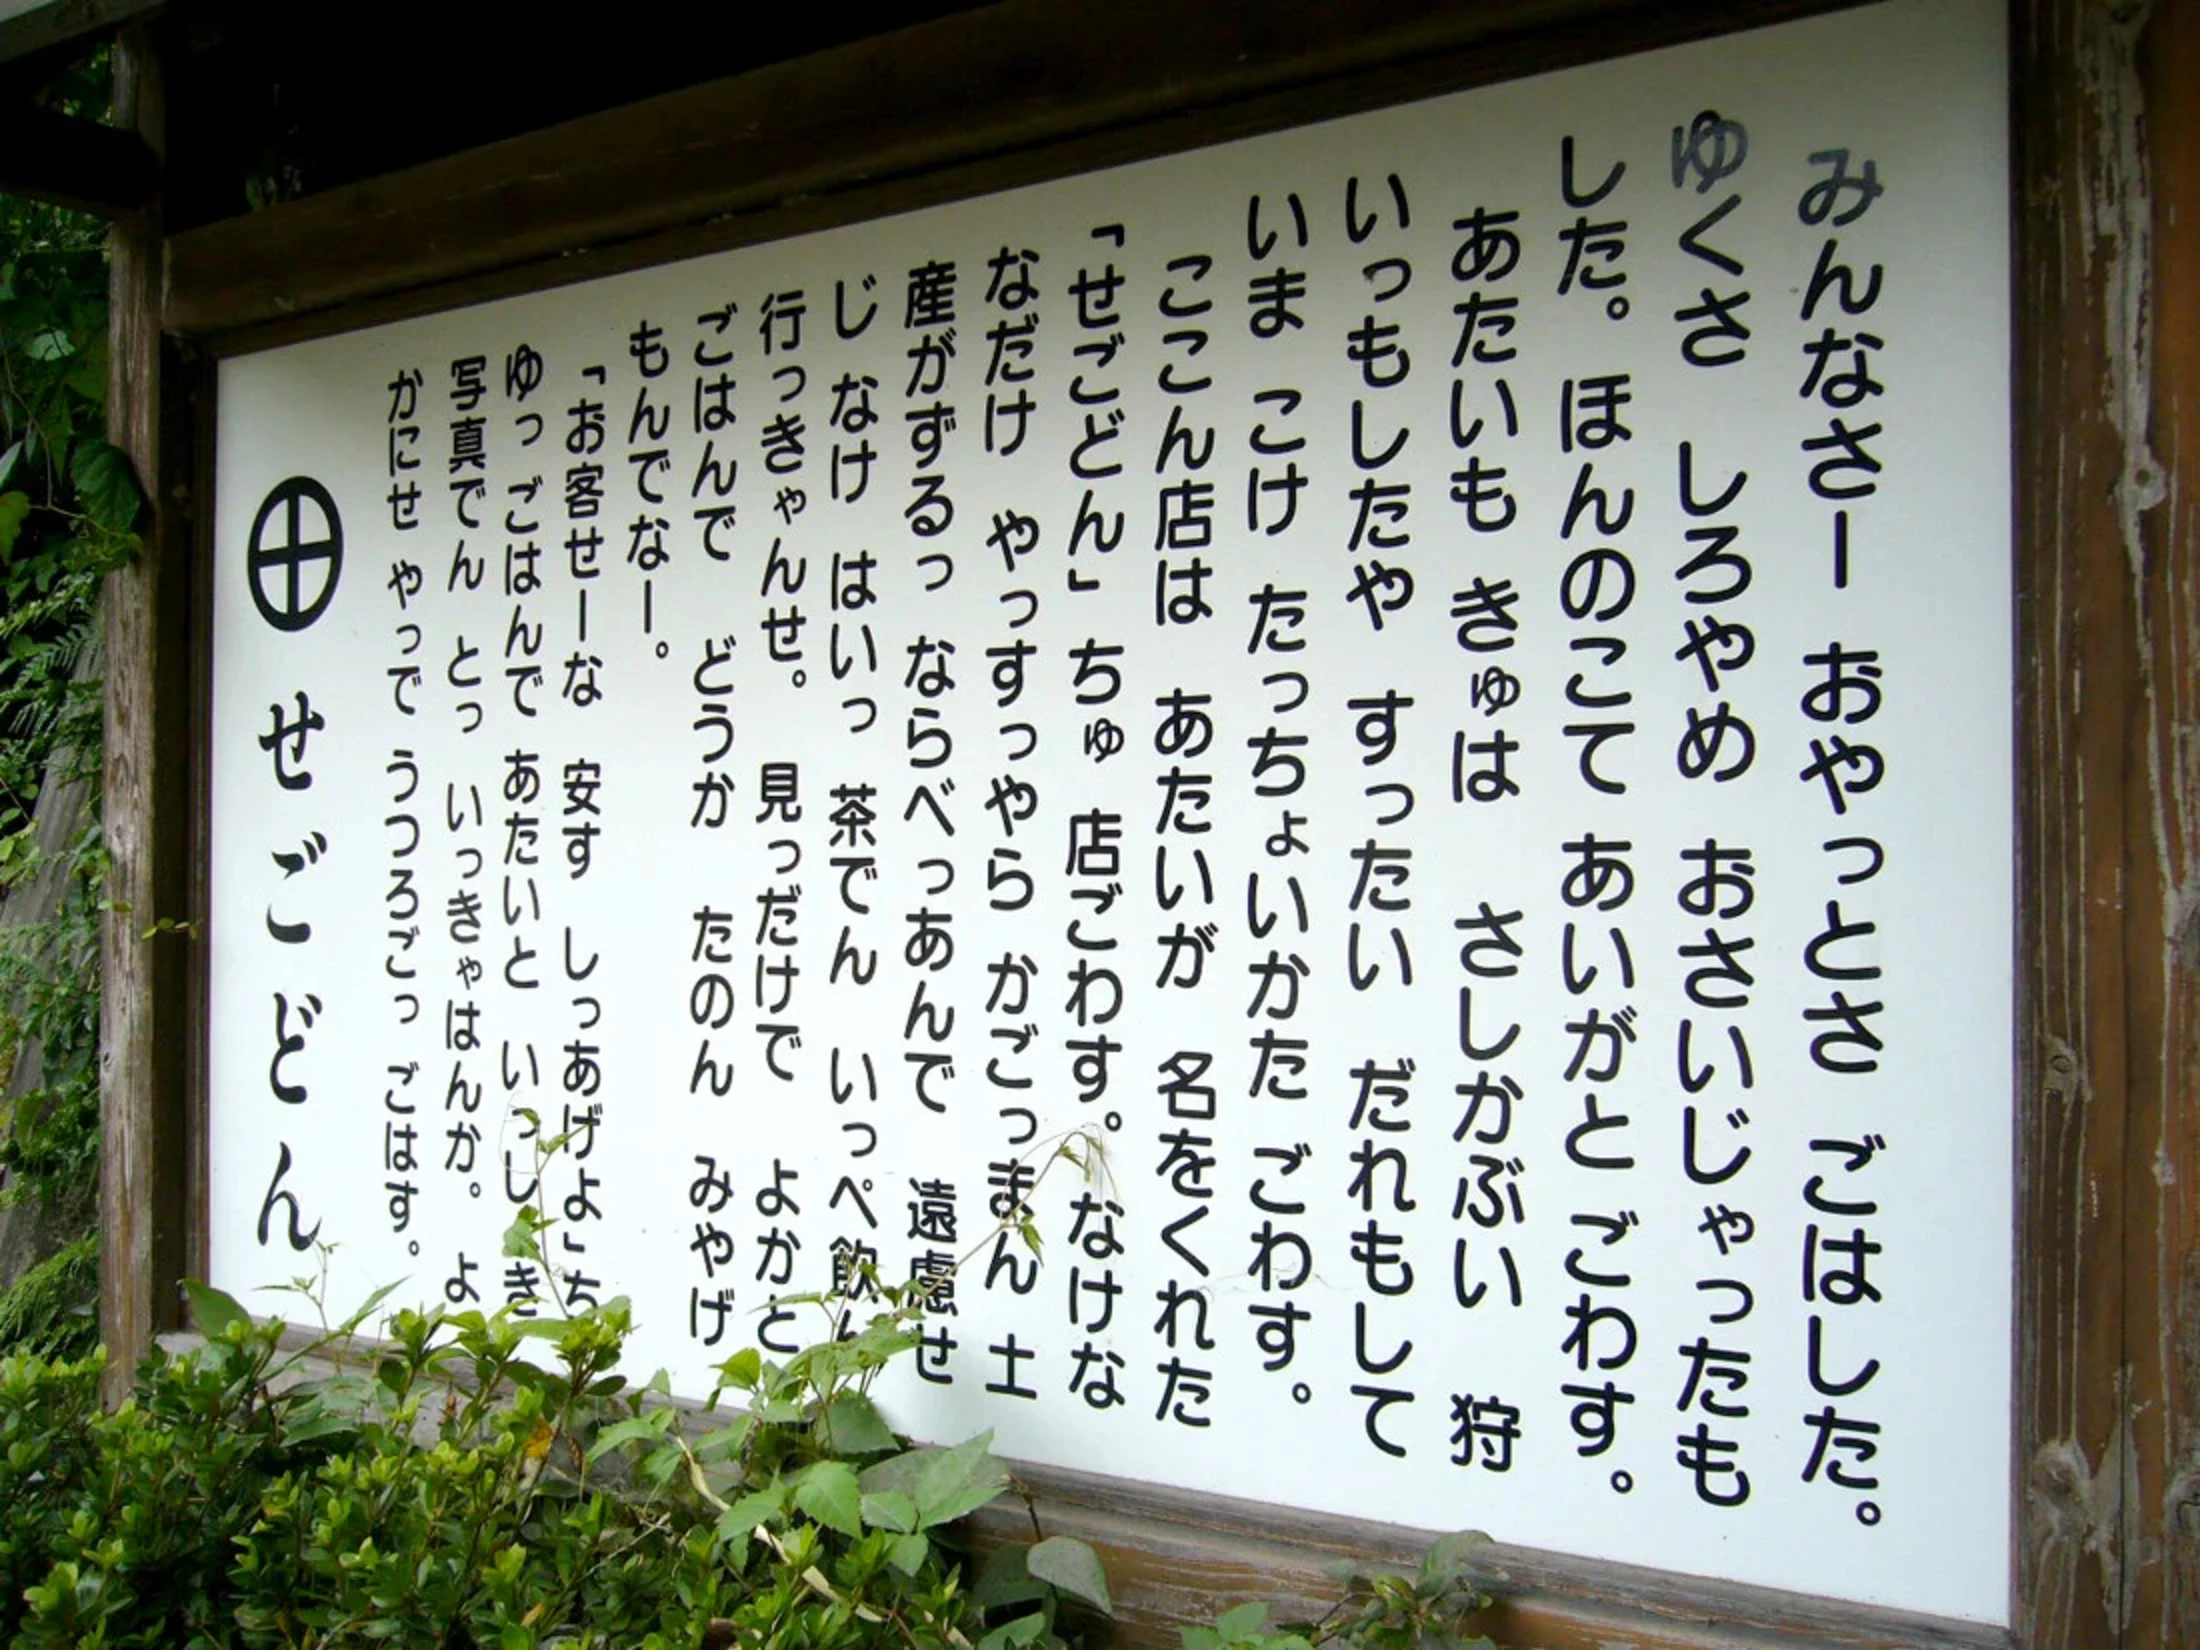 みんなさー おやっとさ ごはした。
ゆくさ しろやめ おさいじゃったも
した。ほんのこて あいがと ごわす。
あたいも きゅは さしかぶい 狩
いっもしたや すったい だれもして
いま こけ たっちょいかた ごわす。
ここん店は あたいが 名をくれた
「せごどん」ちゅ 店ごわす。なけな
なだけ やっすっやら かごっまん 土
産がずるっ ならべっあんで 遠慮せ
じ なけ はいっ 茶でん いっぺ飲ん
行っきゃんせ。見っだけで よかと
ごはんで どうか たのん みやげ
もんでなー。
「お客せーな 安す しっあげよ」ち
ゆっ ごはんで あたいと いっしき
写真でん とっ いっきゃはんか。よ
かにせ やっで うつろごっ ごはす。
せごどん